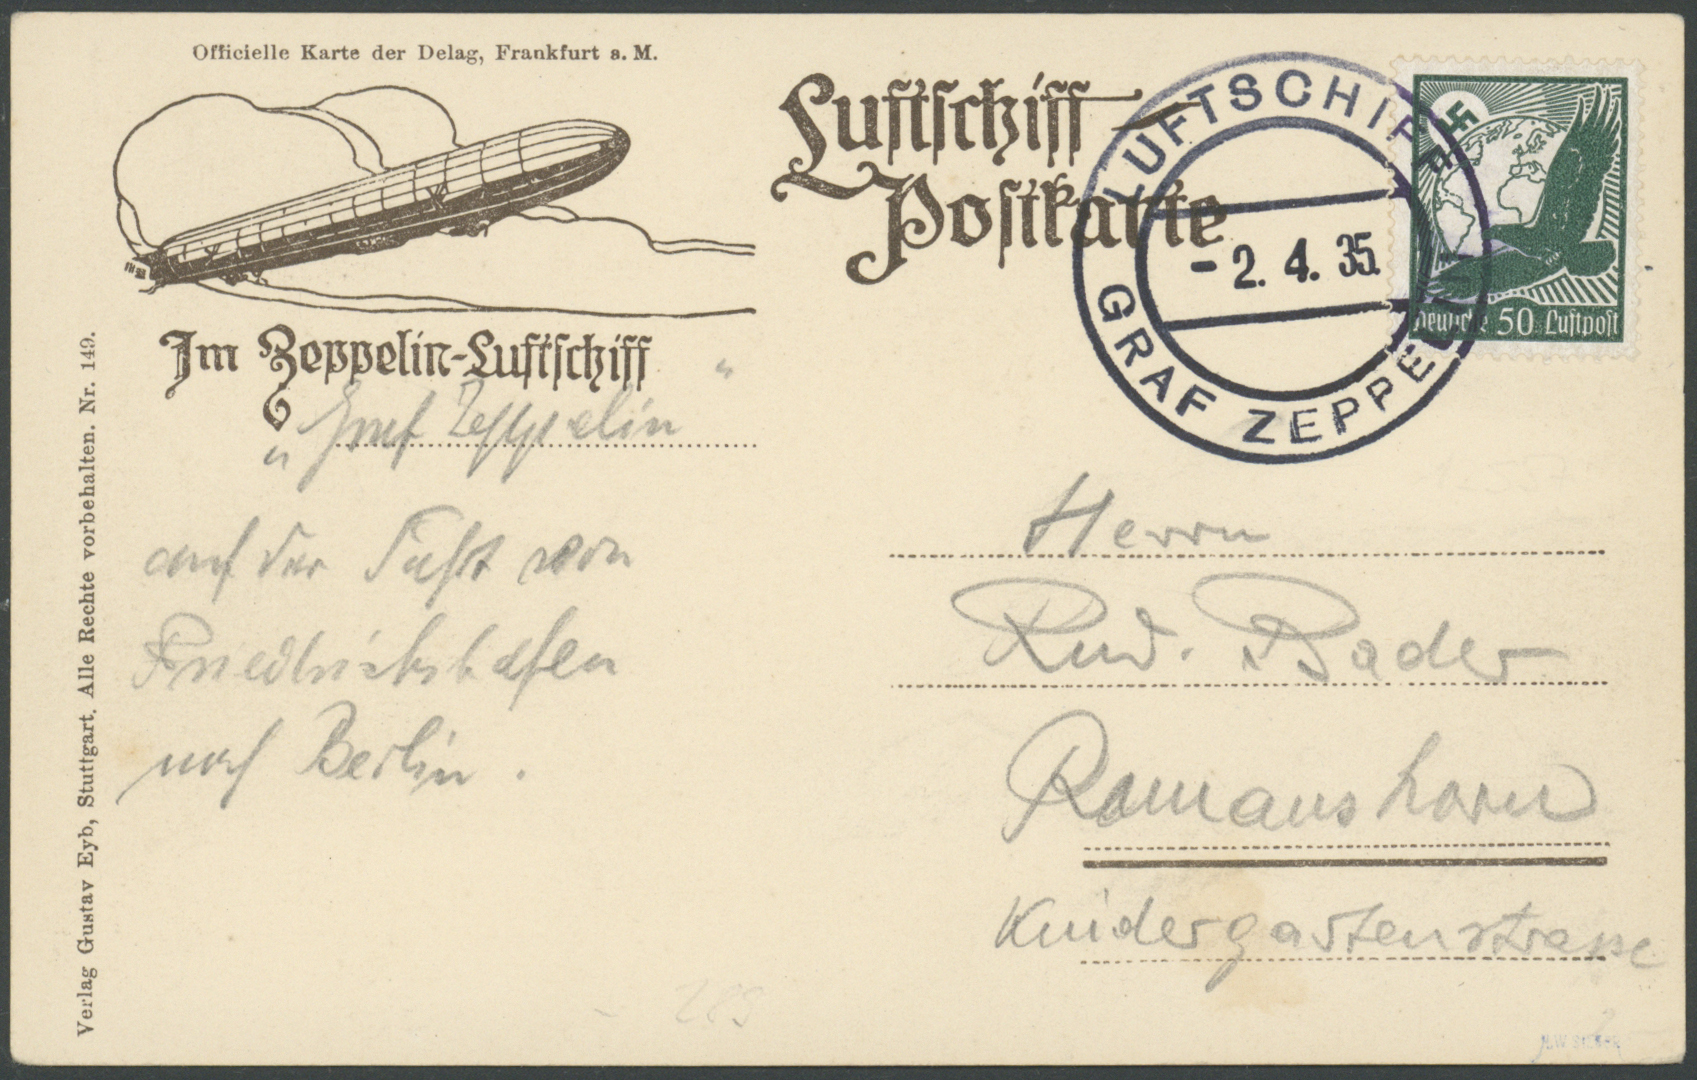 Officielle Karte der Delag, Frankfurt a. M.
Luftschiff
Postkarte
LUFTSCHIFF
GRAF ZEPPELIN
- 2. 4. 35.
Deutsche 50 Luftpost
Im Zeppelin-Luftschiff
"Graf Zeppelin"
auf der Fahrt von
Friedrichshafen
nach Berlin.
Herrn
Rud. Bader
Romanshorn
Kindergartenstrasse
Verlag Gustav Eyb, Stuttgart. Alle Rechte vorbehalten. Nr. 149.
289